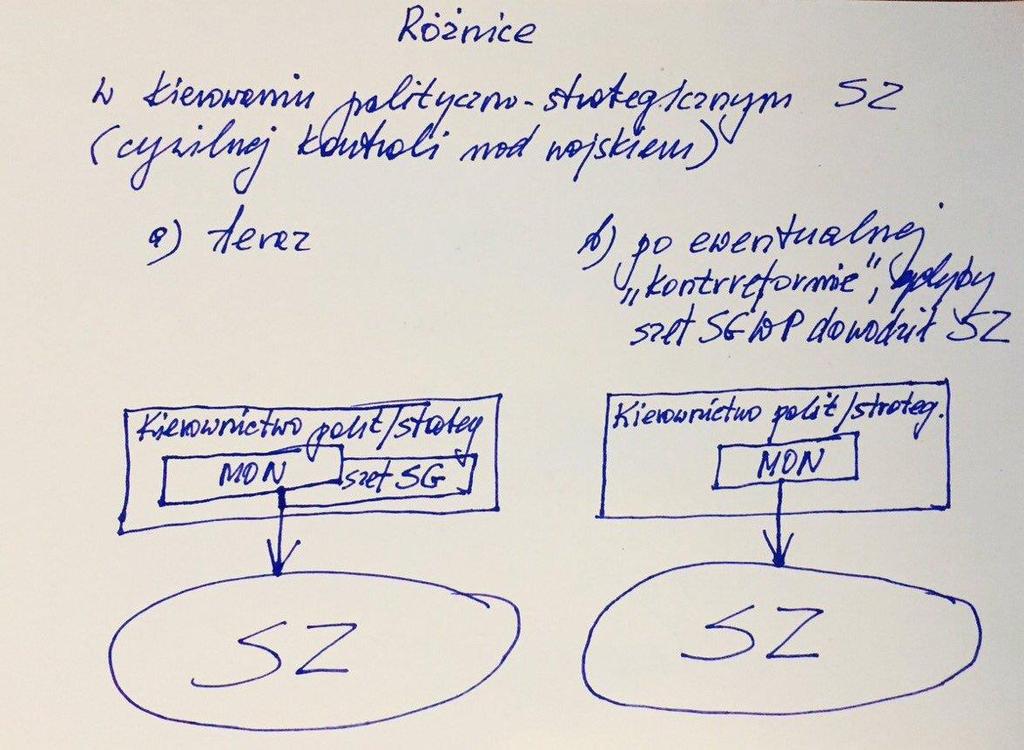 Różnice
w kierowaniu polityczno-strategicznym SZ
(cywilnej kontroli nad wojskiem)
a) teraz
b) po ewentualnej
„kontrreformie”, gdyby
szef SGWP dowodził SZ
Kierownictwo polit/strateg
MON
szef SG
SZ
Kierownictwo polit/strateg.
MON
SZ